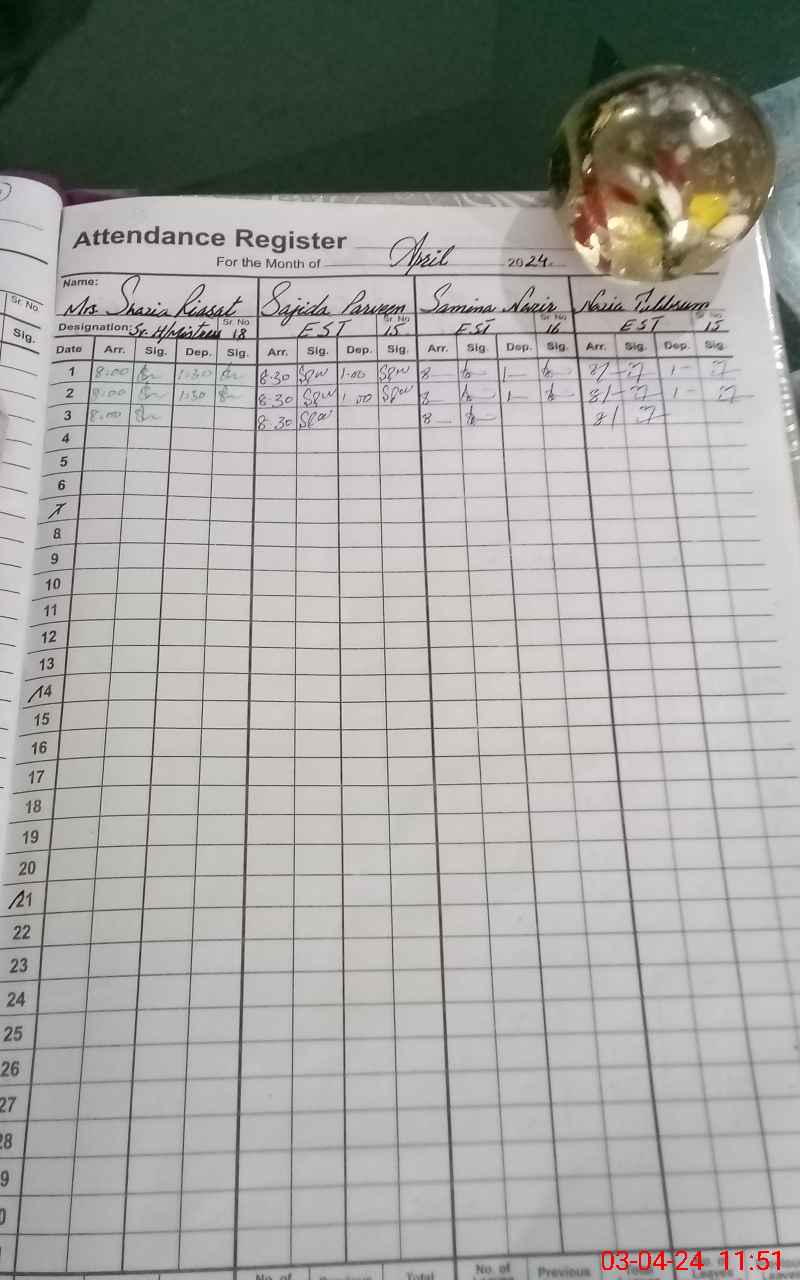 Attendance Register
For the Month of April 2024
Name:
Mrs Shazia Riasat Sajida Parveen Samina Nazir Nazia
Sr. No Sr. No Sr. No Sr. No
Designation: Sr. H/Mistress 18 EST 15 EST 16 EST 15
Sr. No
Sig.
Date Arr. Sig. Dep. Sig. Arr. Sig. Dep. Sig. Arr. Sig. Dep. Sig. Arr. Sig. Dep. Sig.
1 8:00 1:30 8:30 SPW 1:00 SPW 8 1 8/ 1
2 8:00 1:30 8:30 SPW 1:00 SPW 8 1 8/ 1
3 8:00 8:30 SPW 8 8/
4
5
6
7
8
9
10
11
12
13
14
15
16
17
18
19
20
21
22
23
24
25
26
27
28
9
0
No. of Previous Total No. of Previous
03-04-24 11:51